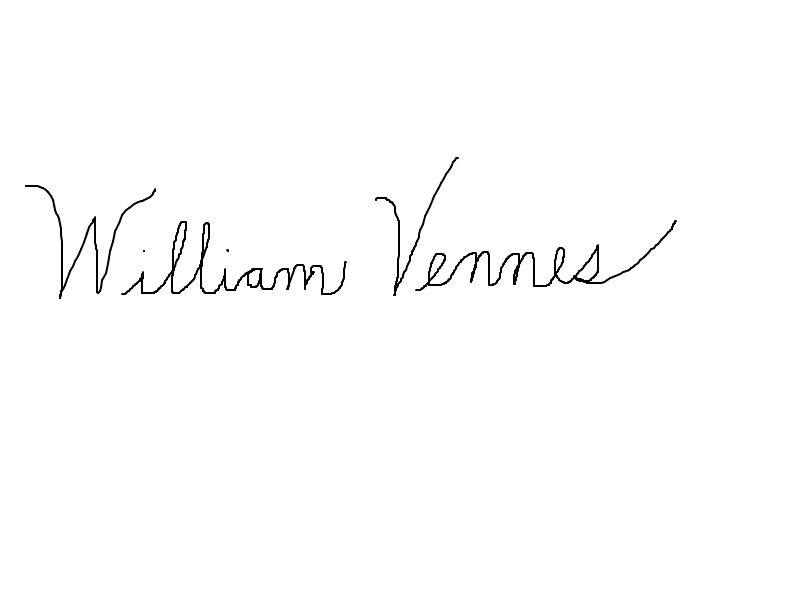 William Vennes